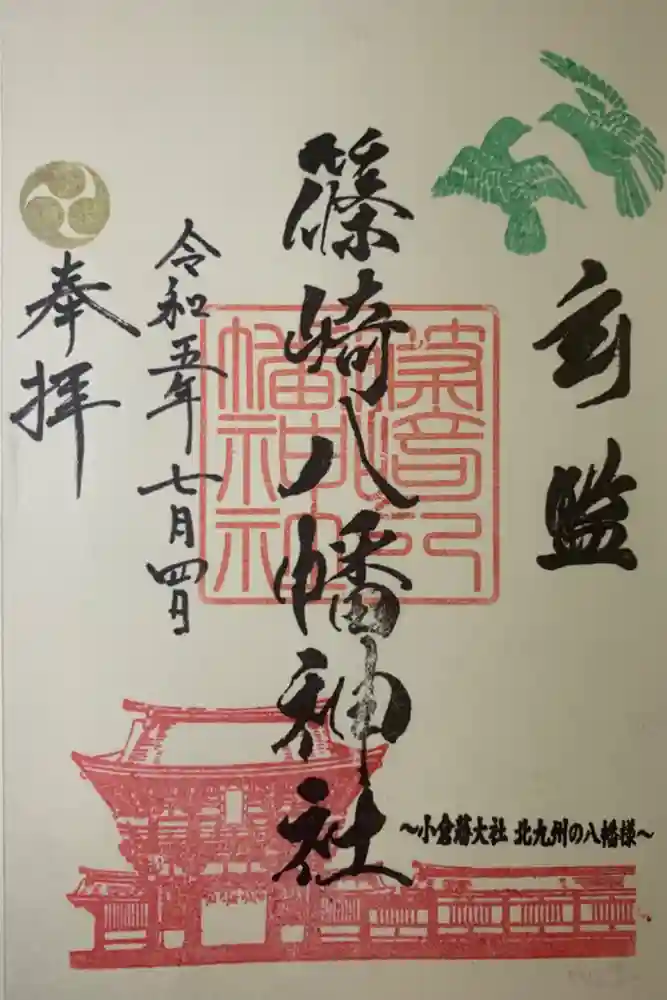 篠崎八幡神社
令和五年七月四日
奉拝
篠崎八
幡神社
～小倉藩大社 北九州の八幡様～